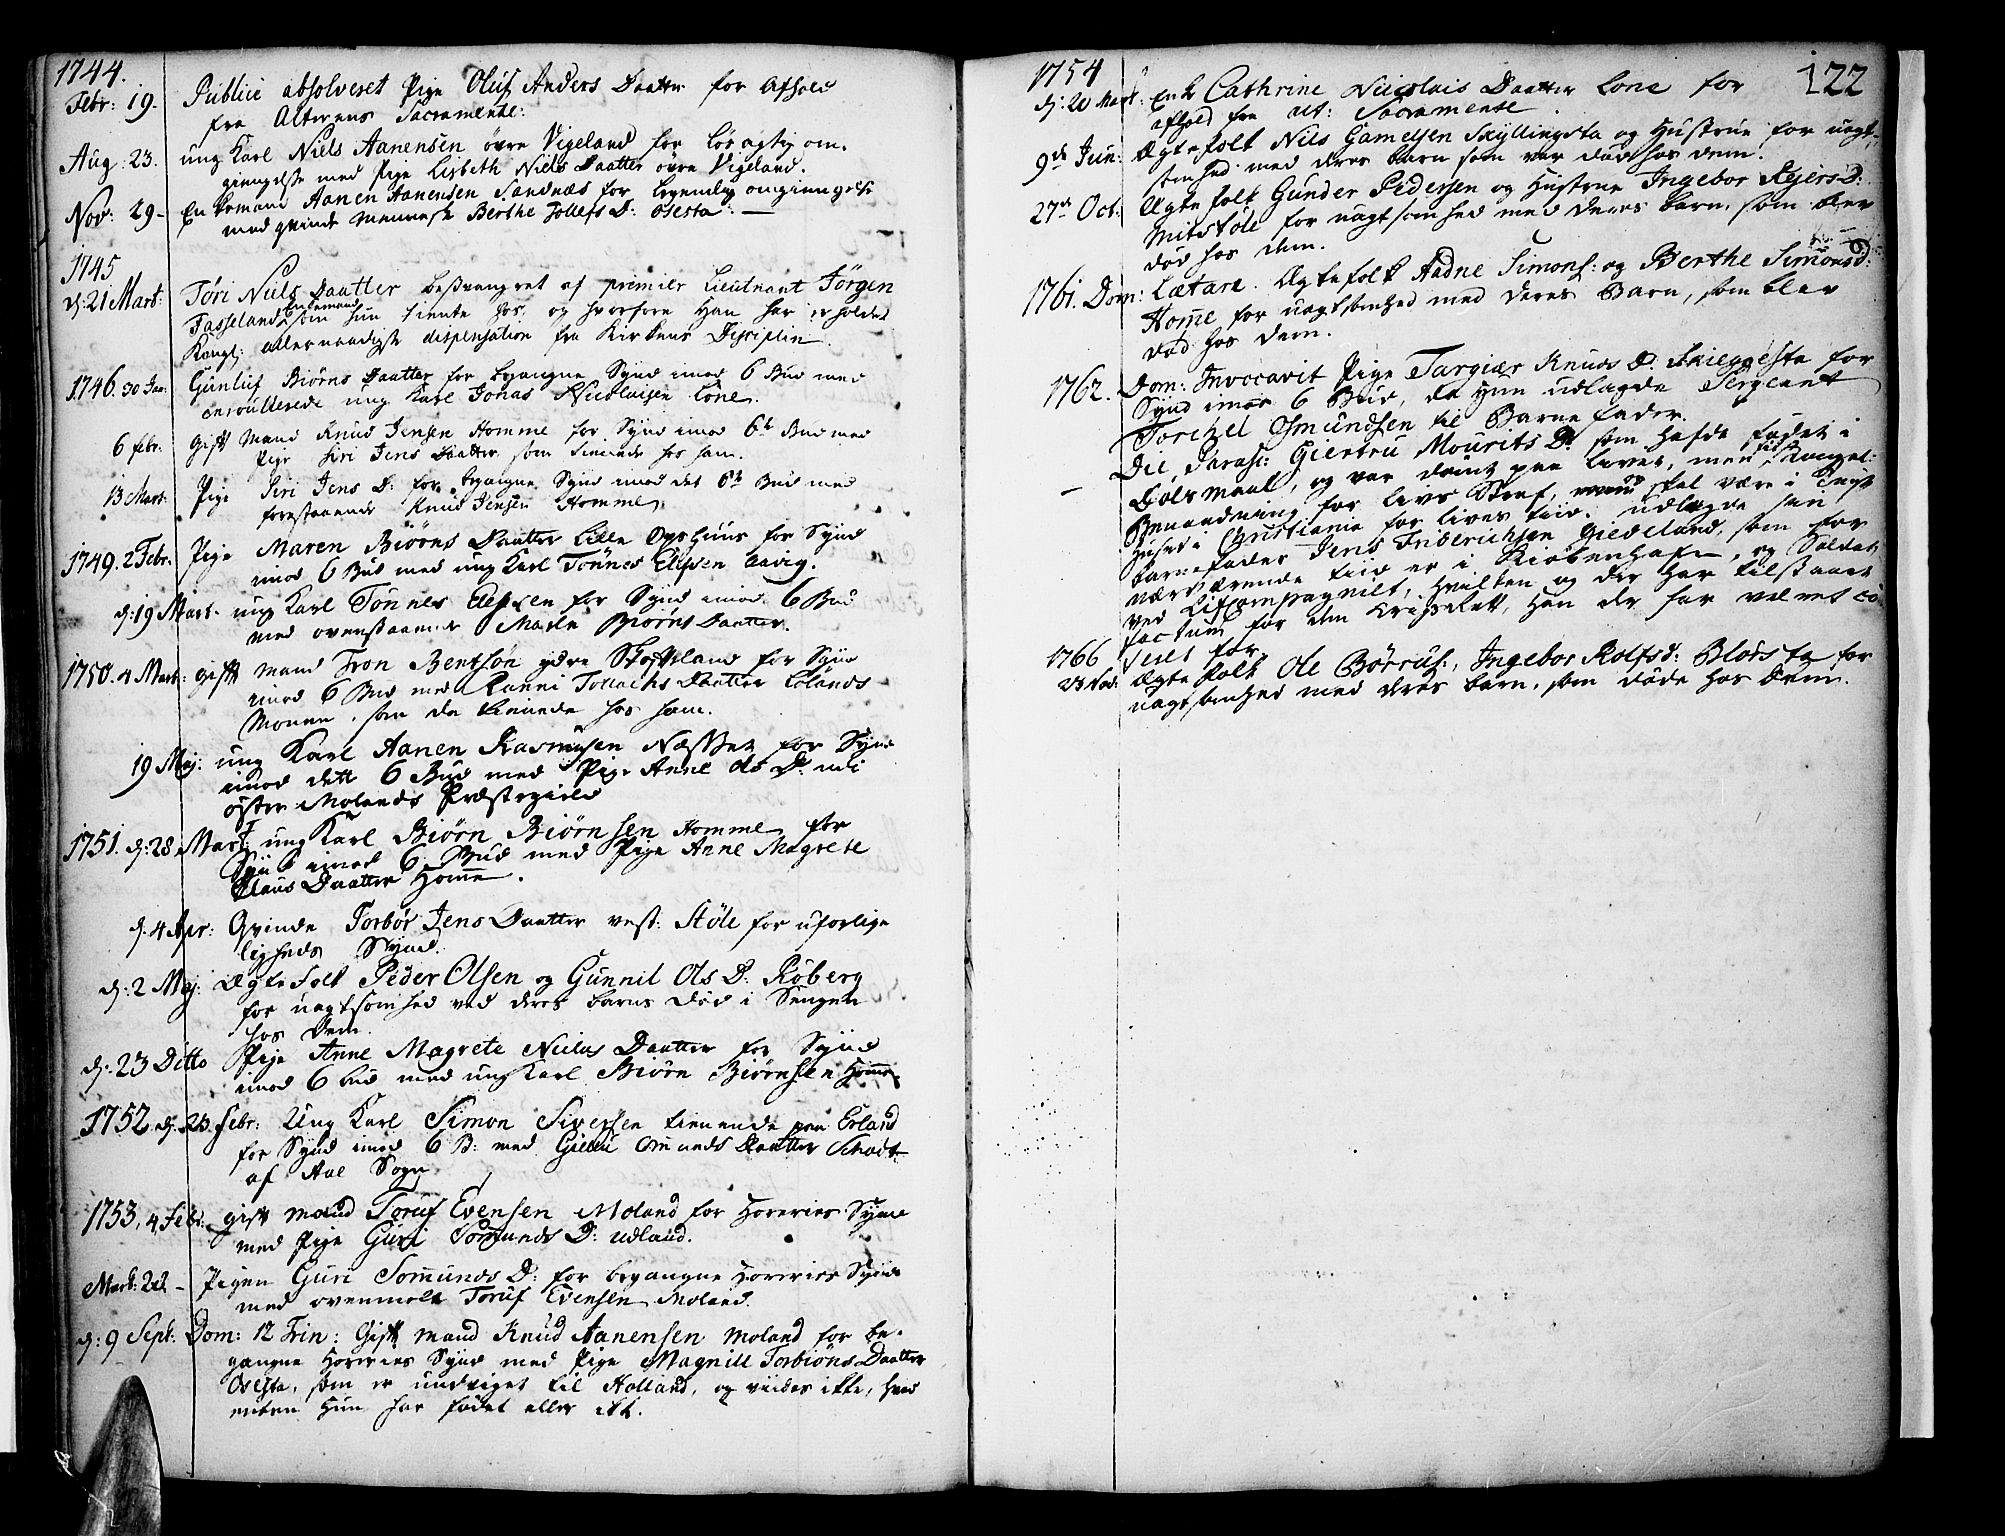 1744.
Febr: 19. Publice absolveret Pige Oluf Anders Daatter for Afhold
fra Alterens Sacramente:
Aug: 23. ung Karl Niels Aanensen övre Vigeland for lösagtig om-
giengelse med Pige Lisbeth Niels Daatter övre Vigeland.
Nov: 29- Enkemand Aanen Aanensen Sandnæs for omgiengelse
med qvinde Menneske Berthe Tollefs D: Osesta: —
1745
d: 21 Mart: Töri Niels Daatter besvangret af premier Lieutnant Jörgen
Enkemand
Fasseland, som hun tiente hos, og hvorfore Han har erholdet
Kongl: allernaadigst dispensation fra Kirkens Disciplin.
1746. 30 Jan: Gunluf Biörns Daatter for begangne Synd imod 6 Bud med
enroullerede ung Karl Jonas Nicolaisen Lone.
6 febr: gift Mand Knud Jensen Homme for Synd imod 6te Bud med
Pige Siri Jens Daatter som tienede hos ham.
13 Mart: Pige Siri Jens D: for begangne Synd imod det 6te Bud med
forestaaende Knud Jensen Homme
1749. 2 Febr. Pige Maren Biörns Daatter Lille Opshuus for Synd
imod 6 Bud med ung Karl Tönnes Elefsen Aavig.
d: 19 Mart. ung Karl Tönnes Elefsen for Synd imod 6 Bud
med ovenstaaende Maren Biörns Daatter.
1750. 4 Mart: gift mand Tron Bentsön ydre for Synd
imod 6 Bud med Ranni Daatter Lölands
Monen, som da tienede hos ham.
19 Maj: ung Karl Aanen Rasmusen Næsset for Synd
imod dett 6 Bud med Pige Anne Ols D: udi
öster Molands Præstegield
1751. d: 28 Mart: ung Karl Biörn Biörnsen Homme for
Synd imod 6 Bud med Pige Anne Magrete
Daatter Homme.
d: 4 Apr: Qvinde Torbör Jens Daatter vest: Stöle for uforlige
ligheds Synd.
d: 2 Maj: Ægte Folk Peder Olsen og Gunnil Ols D: Röberg
for uagtsomhed ved deres barns Död i Sengen
hos Dem.
d: 23 Ditto Pige Anne Magrete Daatter for Synd
imod 6 bud med ung Karl Biörn Biörnsen Homme.
1752 d: 23 Febr: Ung Karl Simon Siversen tienende paa Erland
for Synd imod 6 B: med Daatter
af Aal Sogn
1753, 4 Febr: gift Mand Toruf Evensen Moland for Horeries Synd
med Pige Guri Somunds D: udland.
Mart: 22 - Pigen Guri Somunds D: for begangne Horeries Synd
med ovenmelte Toruf Evensen Moland.
d: 9 Sept: Dom: 12 Trin: Gift mand Knud Aanensen Moland for be-
gangne Horeries Synd med Pige Magnild Torbiöns Daatter
Osesta, som er undviget til Holland, og viides ikke, hvad
enten Hun har födet eller ikke.
122
1754
d: 20 Mart: Enke Cathrine Nicolais Daatter Lone for
afhold fra Alt: Sacramente
9de Jun: Ægtefolk Nils Gamelsen Skyllingsta og Hustrue for uagt-
somhed med deres barn som var död hos dem.
27de Oct: Ægtefolk Gunder Pedersen og Hustrue Ingebor Rejers D:
Mitstöle for uagtsomhed med deres barn, som blev
död hos dem.
1761. Dom: Lætare. Ægtefolk Aadne Simons: og Berthe Simonsd:
Home for uagtsomhed med deres Barn, som blev
död hos dem.
1762. Dom: Invocavit Pige Targiær Knuds D. Skieggesta for
Synd imod 6 Bud, da Hun udlagde Sergeant
Torchel Osmundsen til Barne fader.
— Die Parasc: Giertru Mourits D: som hafde födet i
Dölsmaal, og var dömt paa livet, men Kongel:
Benaadning for livs Straf, skal være i Tugt
huset i Christiania for livs tiid. udlagde sin
barnefader Jens Friderichsen Giedeland, som for
nærværende tiid er i Kiöbenhafn, og Soldat
ved Lifcompagniet, hvilken og der har tilstaaet
factum for den Krigsrett, Han der har været
for.
1766
23 Nov: Ægtefolk Ole Börrus:, Ingebor Rolfsd: Blodsta for
uagtsomhed med deres barn, som döde hos Dem.